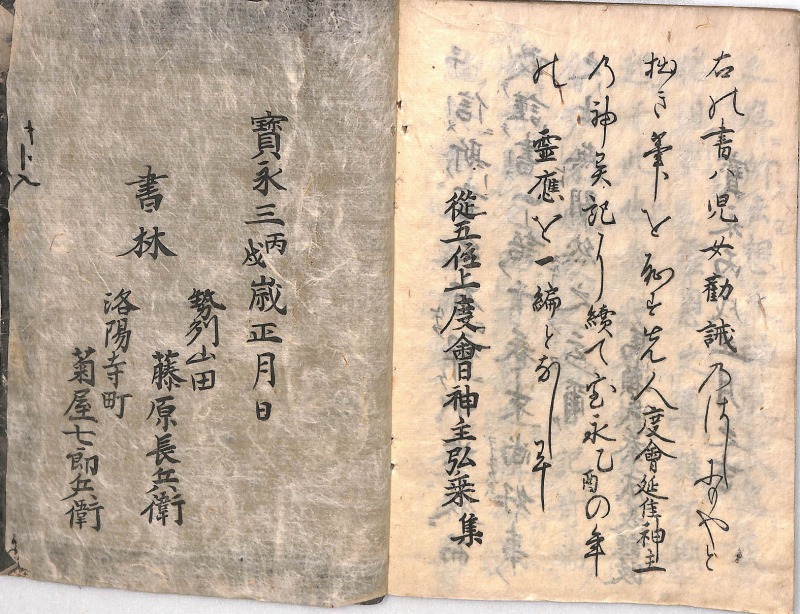 右此書ハ児女勧誡乃はしにもやと
拙き筆を馳を先人度會延佳神主
乃神異記より續て宝永乙酉の年
此霊應を一編となし畢
從五位上度會神主弘乗集
寶永三丙戌歳正月日
勢列山田
藤原長兵衛
書林
洛陽寺町
菊屋七郎兵衛